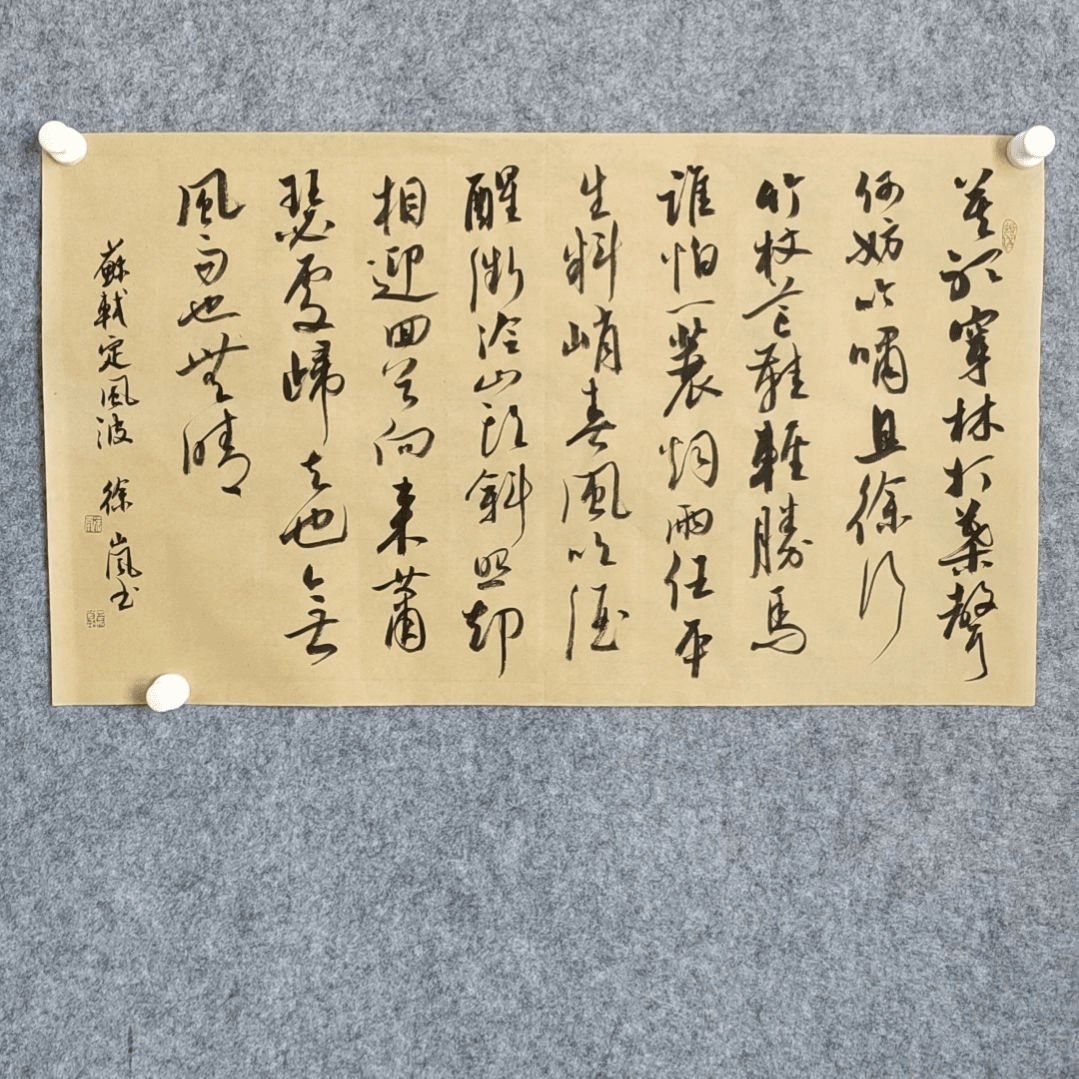 莫聽穿林打葉聲
何妨吟嘯且徐行
竹杖芒鞋輕勝馬
誰怕一蓑烟雨任平
生料峭春風吹酒
醒微冷山頭斜照却
相迎回首向來蕭
瑟處歸去也無
風雨也無晴
蘇軾定風波 徐嵐書